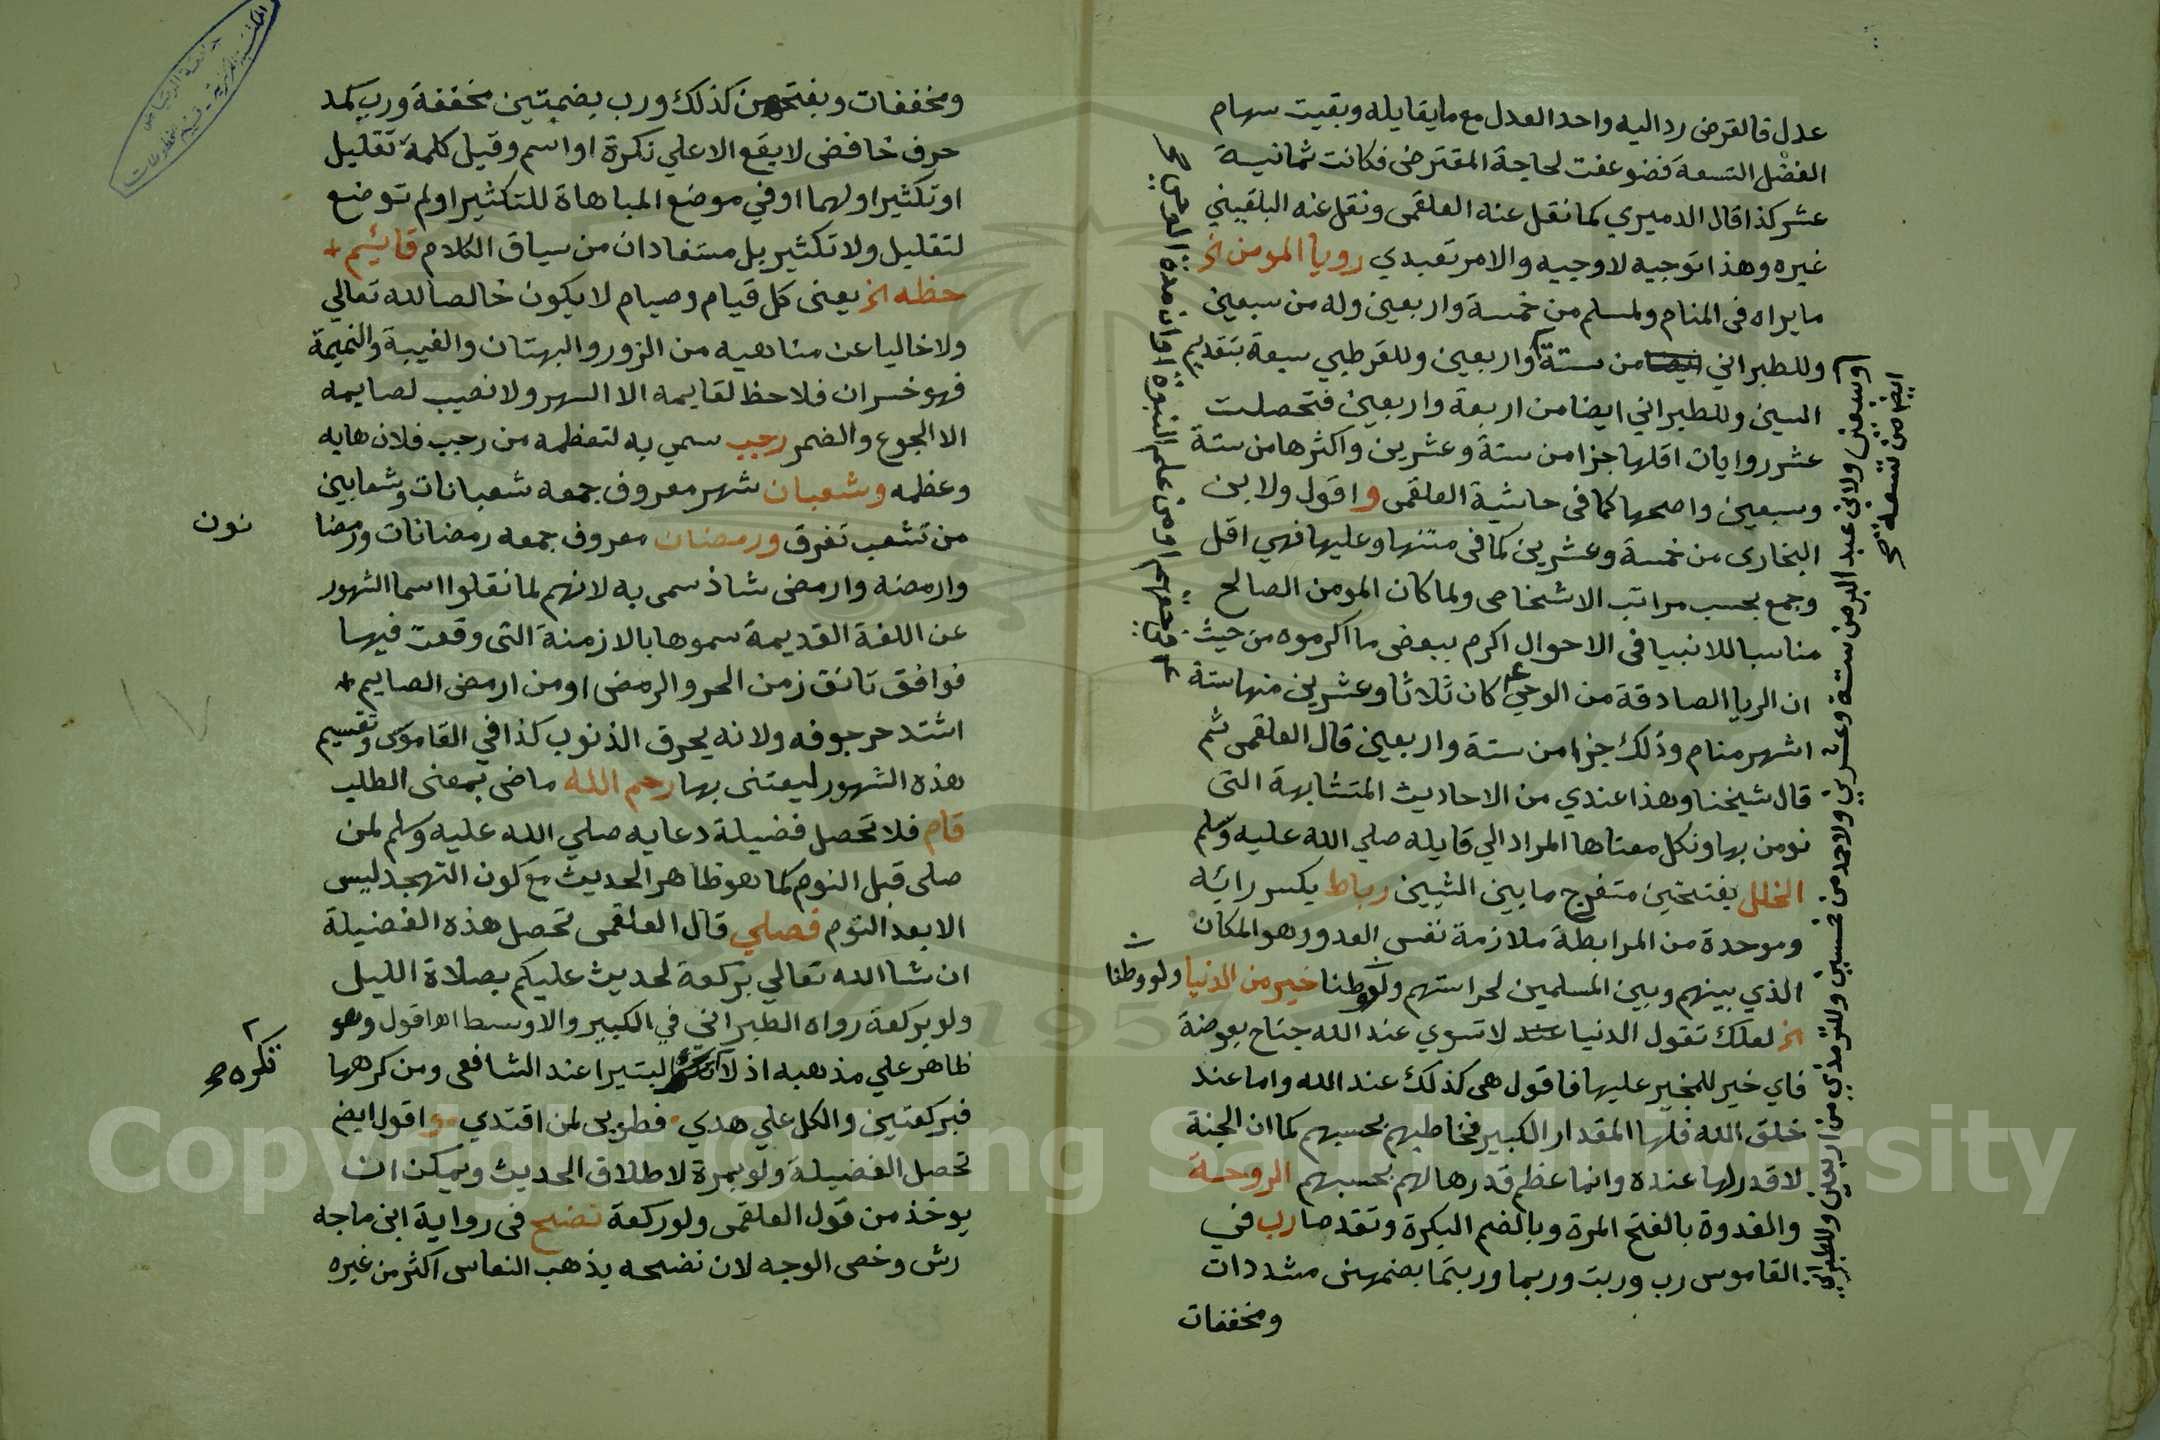 عدل فالقرض رد اليه واحد العدل مع ما يقابله وبقيت سهام
الفضل التسعة فضوعفت لحاجة المقترض فكانت ثمانية
عشر كذا قال الدميري كما نقل عنه العلقمى ونقل عنه البلقيني
غيره وهذا توجيه لا وجيه والامر تعبدي رويا المومن الخ
ما يراه فى المنام ولمسلم من خمسة واربعين وله من سبعين
وللطبراني من ستة واربعين وللقرطبي سبعة بتقديم
السين وللطبراني ايضا من اربعة واربعين فتحصلت
عشر روايات اقلها جزا من ستة وعشرين واكثرها من ستة
وسبعين واصحها كما فى حاشية العلقمى واقول ولابن
البخارى من خمسة وعشرين كما فى متنها وعليها فهي اقل
وجمع بحسب مراتب الاشخاص ولما كان المومن الصالح
مناسبا للانبيا فى الاحوال اكرم ببعض ما اكرموه من حيث
ان الريا الصادقة من الوحي كان ثلاثا وعشرين منها ستة
اشهر منام وذلك جزا من ستة واربعين قال العلقمى ثم
قال شيخنا وهذا عندي من الاحاديث المتشابهة التى
نومن بها ونكل معناها المراد الي قايله صلي الله عليه وسلم
الخلل بفتحتين متفرج ما بين الشيين رباط بكسر رائه
وموحدة من المرابطة ملازمة نفس العدو وهو المكان
الذي بينهم وبين المسلمين لحراستهم ولو وطنا خير من الدنيا ولو وطنا
الخ لعلك تقول الدنيا لا تسوي عند الله جناح بعوضة
فاي خير للمخير عليها فاقول هى كذلك عند الله واما عند
خلق الله فلها المقدار الكبير فخاطبهم بحسبهم كما ان الجنة
لا قدر لها عنده وانما عظم قدرها لهم بحسبهم الروحة
والغدوة بالفتح المرة وبالضم البكرة وتقدما رب في
القاموس رب وربت وربما وربتما بضمهن مشددات
ومخففات
وسبعين ولابن عبد البر من ستة وعشرين ولاحمد من خمسين وللترمذي من اربعين وللطبراني
ايضا من تسعة صح
ومخففات وبفتحهن كذلك ورب بضمتين مخففة ورب كمد
حرف خافض لا يقع الا علي نكرة او اسم وقيل كلمة تقليل
او تكثير او لهما او في موضع المباهاة للتكثير او لم توضع
لتقليل ولا تكثير بل مستفادان من سياق الكلام قائيم
حظه الخ يعنى كل قيام وصيام لا يكون خالصا لله تعالي
ولا خاليا عن مناهيه من الزور والبهتان والغيبة والنميمة
فهو خسران فلا حظ لقايمه الا السهر ولا نصيب لصايمه
الا الجوع والضمر رجب سمي به لتعظمه من رجب فلان هابه
وعظمه وشعبان شهر معروف جمعه شعبانات وشعابين
من تشعب تفرق ورمضان معروف جمعه رمضانات ورمضا
نون
وارمضه وارمض شاذ سمى به لانهم لما نقلوا اسما الشهور
عن اللغة القديمة سموها بالازمنة التى وقعت فيها
فوافق ناتق زمن الحر والرمض او من ارمض الصايم
اشتد حر جوفه ولانه يحرق الذنوب كذا في القاموس وتقسيم
هذه الشهور ليعتنى بها رحم الله ماض بمعنى الطلب
قام فلا تحصل فضيلة دعايه صلي الله عليه وسلم لمن
صلى قبل النوم كما هو ظاهر الحديث مع كون التهجد ليس
الا بعد النوم فصلي قال العلقمى تحصل هذه الفضيلة
ان شا الله تعالي بركعة لحديث عليكم بصلاة الليل
ولو بركعة رواه الطبراني في الكبير والاوسط اه اقول وهو
ظاهر علي مذهبه اذ لا البتيرا عند الشافعى ومن كرهها
تكره صح
فبركعتين والكل علي هدي فطوبى لمن اقتدي واقول ايض
تحصل الفضيلة ولو بمرة لاطلاق الحديث ويمكن ان
يوخذ من قول العلقمى ولو ركعة نضح فى رواية ابن ماجه
رش وخص الوجه لان نضحه يذهب النعاس اكثر من غيره
Copyright © King Saud University
1957